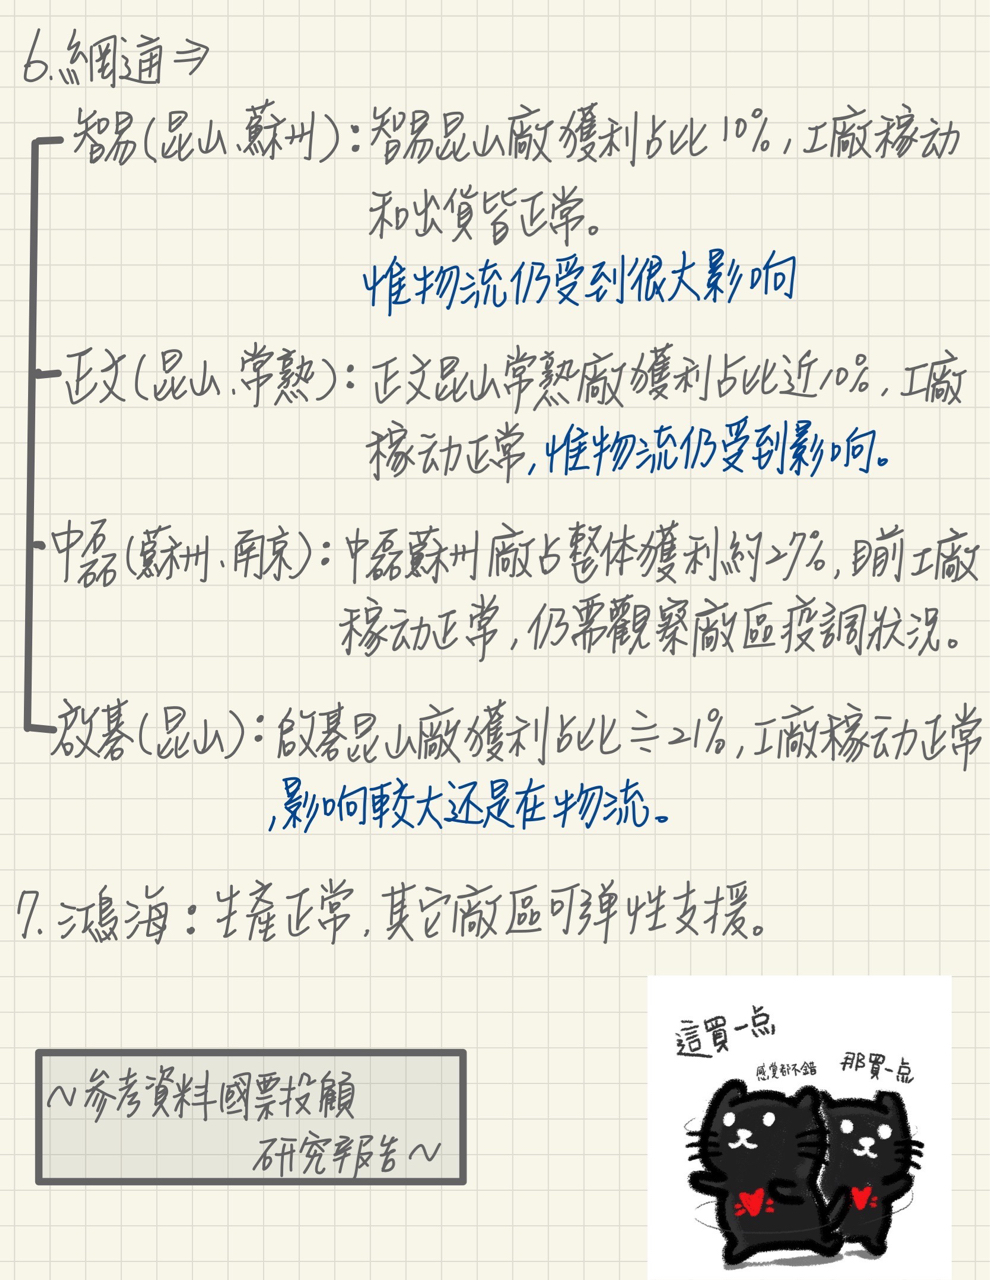 6.網通⇒
智易(昆山、蘇州):智易昆山廠獲利占比10%,工廠稼动
和出貨皆正常。
惟物流仍受到很大影响
正文(昆山、常熟):正文昆山常熟廠獲利占比近10%,工廠
稼动正常,惟物流仍受到影响。
中磊(蘇州、南京):中磊蘇州廠占整体獲利約27%,目前工廠
稼动正常,仍需觀察廠區疫調狀況。
啟碁(昆山):啟碁昆山廠獲利占比≒21%,工廠稼动正常
,影响較大还是在物流。
7.鴻海:生產正常,其它廠區可弹性支援。
~参考資料國票投顧
研究報告~
這買一点
感覺都不錯
那買一点